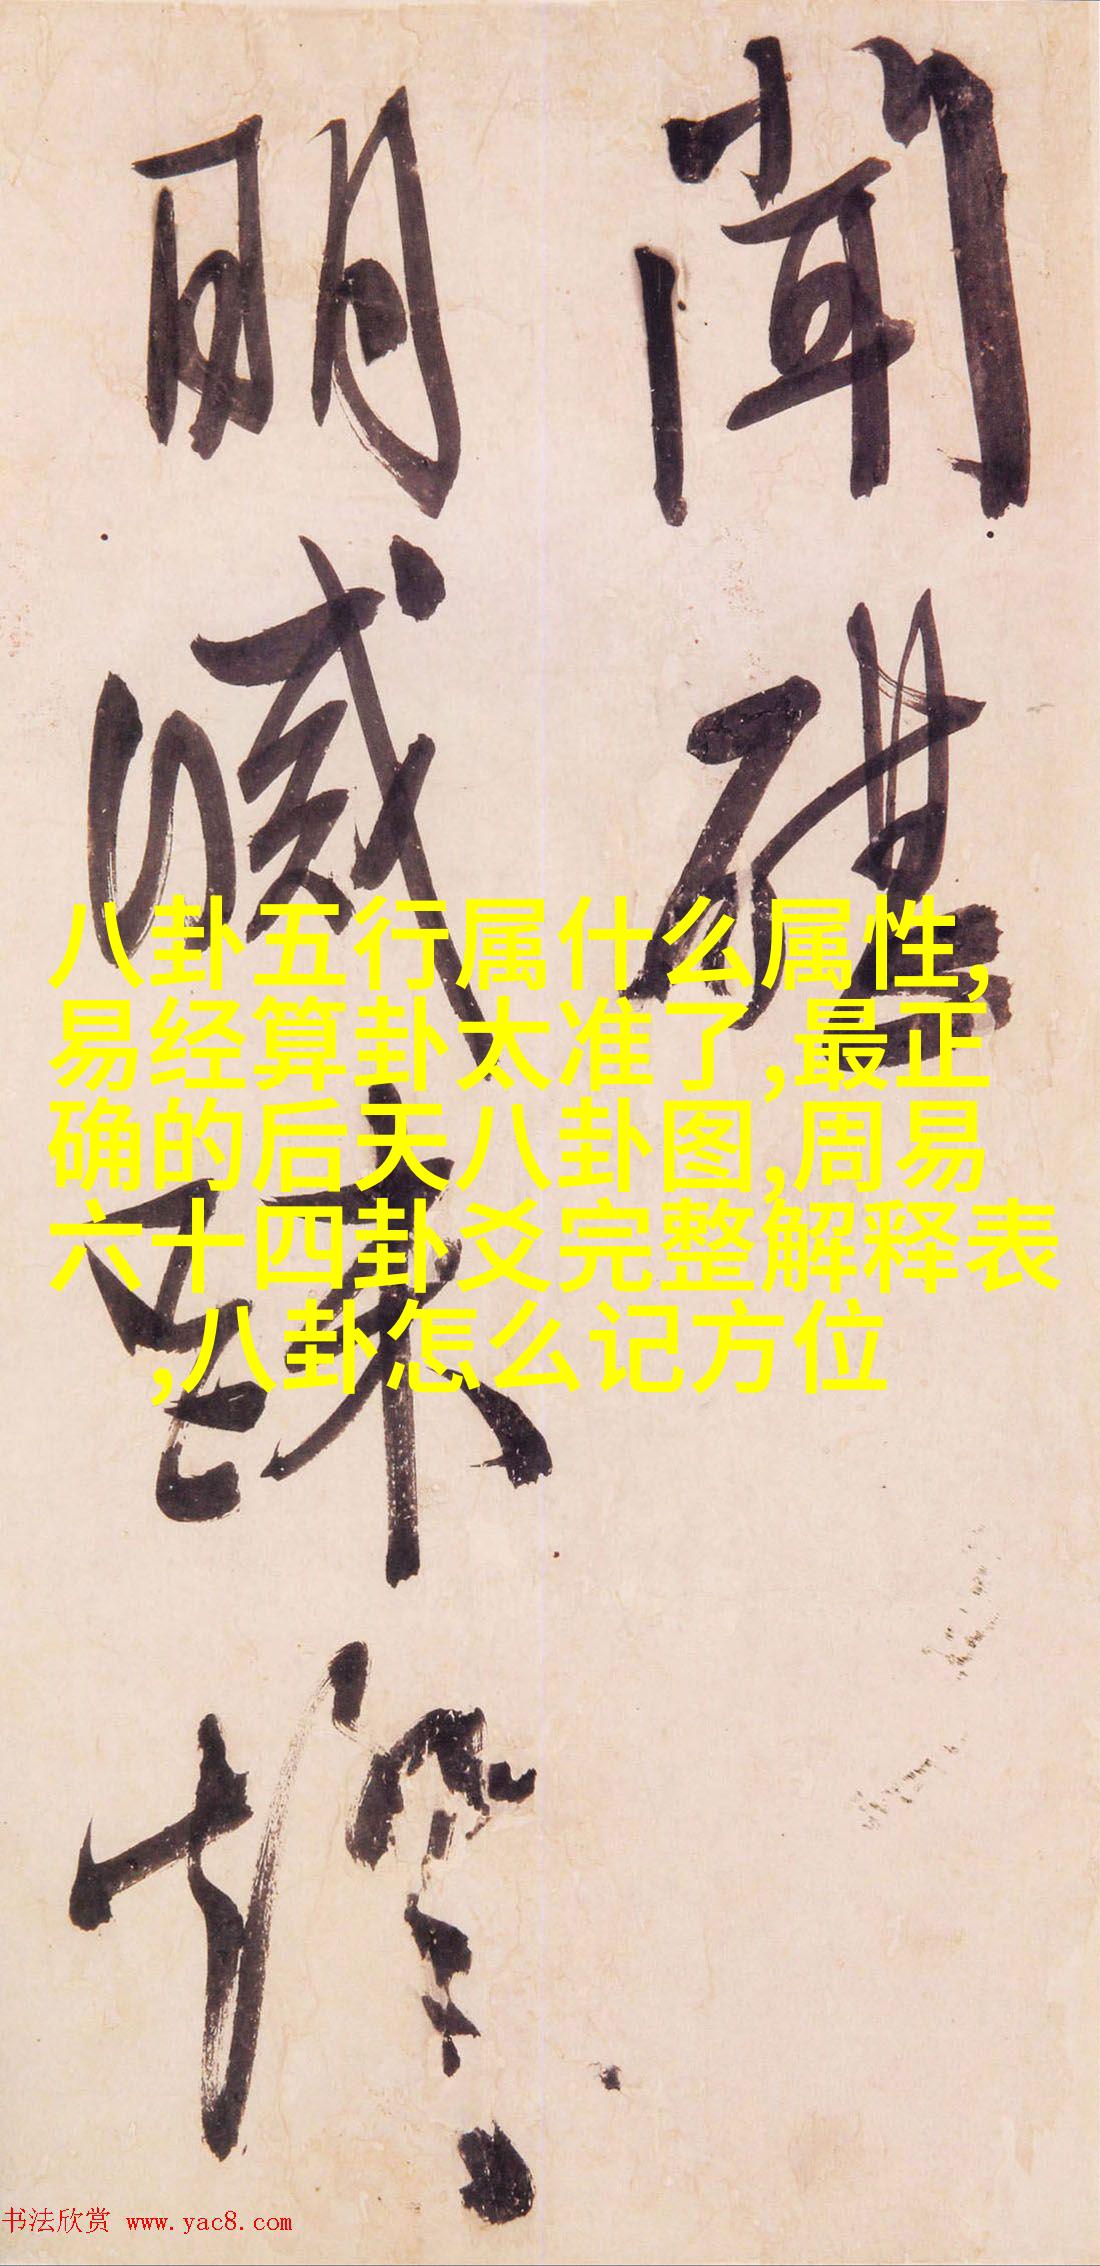 聞碪
明滅
八卦五行属什么属性,
易经算卦太准了,最正
确的后天八卦图,周易
六十四卦爻完整解释表
,八卦怎么记方位
书法欣赏 www.yac8.com